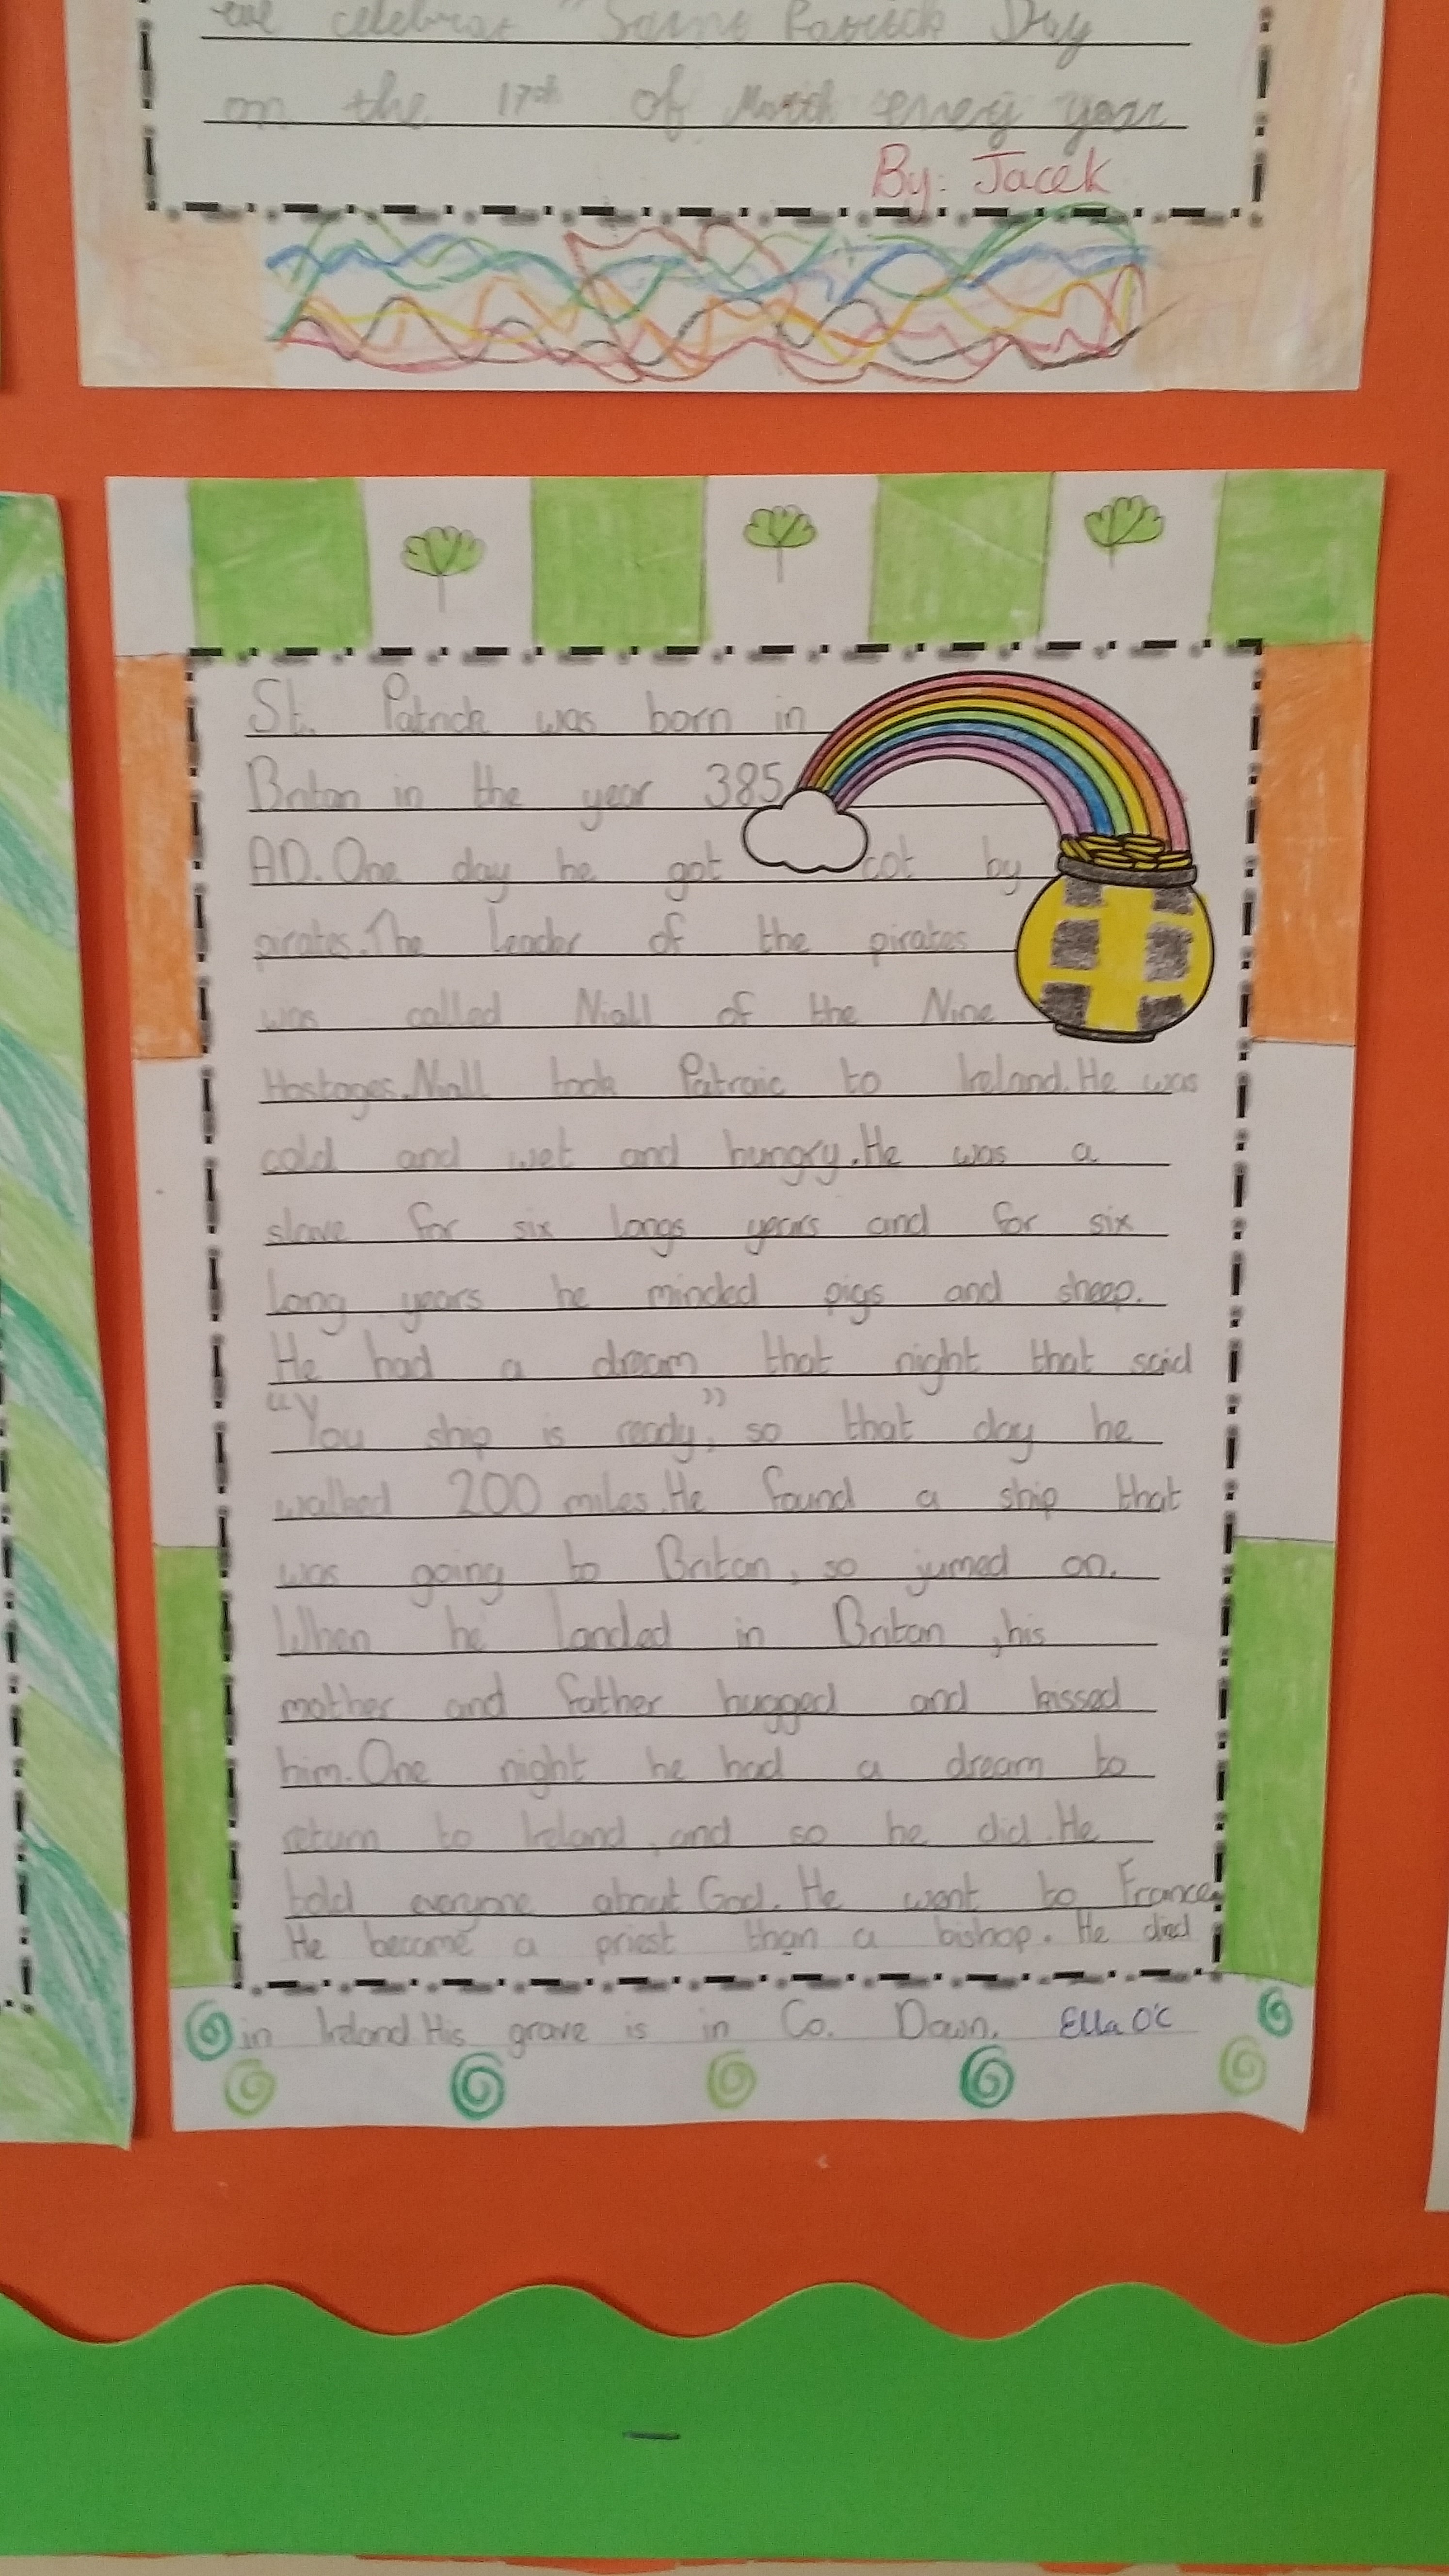 we celebrat "Saint Patrick Day
on the 17th of March every year
By: Jacek
St. Patrick was born in
Britan in the year 385
AD. One day he got cot by
pirates. The leader of the pirates
was called Niall of the Nine
Hostages. Niall took Patraic to Ireland. He was
cold and wet and hungry. He was a
slave for six longs years and for six
long years he minded pigs and sheep.
He had a dream that night that said
"You ship is ready", so that day he
walked 200 miles. He found a ship that
was going to Britan, so jumed on.
When he landed in Britan, his
mother and father hugged and kissed
him. One night he had a dream to
return to Ireland, and so he did. He
told everyone about God. He went to France.
He became a priest than a bishop. He died
in Ireland His grave is in Co. Down. Ella O'C